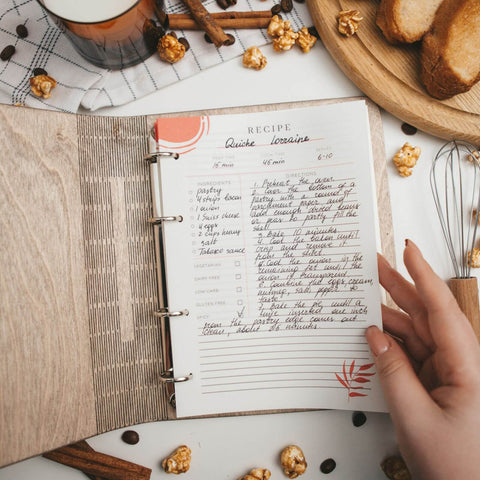 RECIPE
Quiche Lorraine
PREP TIME COOK TIME SERVES
15 min 45 min 6-10
INGREDIENTS
pastry
4 strips bacon
1 onion
1 Swiss cheese
4 eggs
2 cups
salt
Tobasco sauce
VEGETARIAN
DAIRY FREE
LOW CARB
GLUTEN FREE
SPICY
DIRECTIONS
1. Preheat the oven
2. Cover the bottom of a
pastry with a round of
parchment paper and
add enough dried beans
or peas to partly fill the
shell
3. Bake 10 minutes
4. Cook the bacon until
crisp and remove it
from the skillet
5. Cook the onion in the
remaining fat until the
onion is transparent
6. Combine the eggs, cream,
nutmeg, salt, pepper to
taste
7. Bake the pie until a
knife inserted one inch
from the pastry edge comes out
clean, about 25 minutes